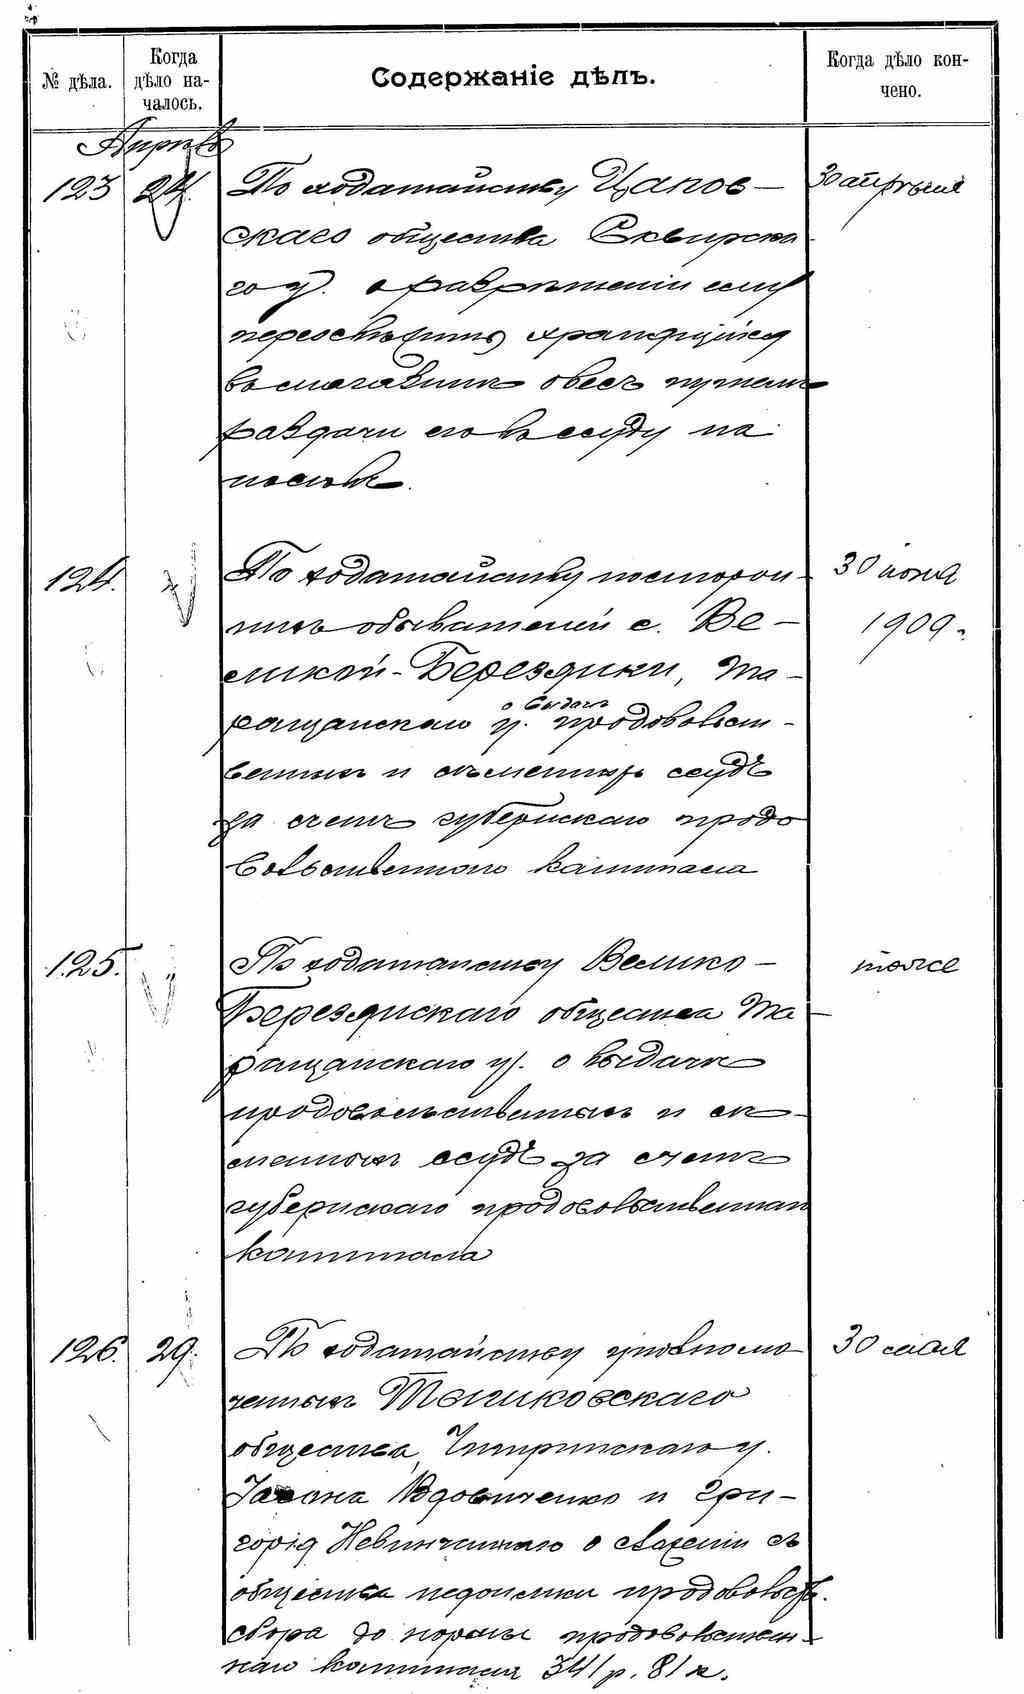 № дѣла.
Когда дѣло началось.
Содержаніе дѣлъ.
Когда дѣло кончено.
Апрѣль
123 24. По ходатайству Цапов- 30 апрѣля
скаго общества Сквирска
го у. о разрѣшеніи ему
хранящійся
въ магазинѣ овесъ путемъ
раздачи его въ ссуду на
посѣвъ.
124. По ходатайству посторон- 30 іюня
нихъ обывателей с. Ве- 1909 г.
ликой-Березянки, Та-
о выдачѣ
ращанскаго у. продовольст-
венныхъ и сѣменныхъ ссудъ
за счетъ губернскаго продо
вольственнаго капитала
125. По ходатайству Велико- тоже
Березянскаго общества Та-
ращанскаго у. о выдачѣ
продовольственныхъ и сѣ-
менныхъ ссудъ за счетъ
губернскаго продовольственнаго
капитала
126. 29. По ходатайству уполномо 30 мая
ченныхъ Теликовскаго
общества, Чигиринскаго у.
Вдовиченко и Гри-
горія о сложеніи съ
общества недоимки продовольств.
сбора до нормы продовольствен-
наго капитала 341 р. 81 к.